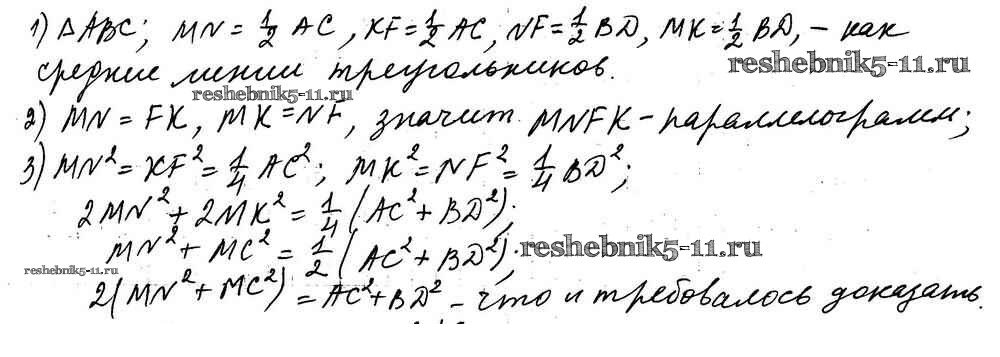 1) △ABC; MN = 1/2 AC, KF = 1/2 AC, NF = 1/2 BD, MK = 1/2 BD, – как
reshebnik5-11.ru
средние линии треугольников.
reshebnik5-11.ru
2) MN = FK, MK = NF, значит MNFK – параллелограмм;
3) MN² = KF² = 1/4 AC²; MK² = NF² = 1/4 BD²;
2MN² + 2MK² = 1/4 (AC² + BD²);
MN² + MC² = 1/2 (AC² + BD²);
reshebnik5-11.ru
reshebnik5-11.ru
2(MN² + MC²) = AC² + BD² – что и требовалось доказать.